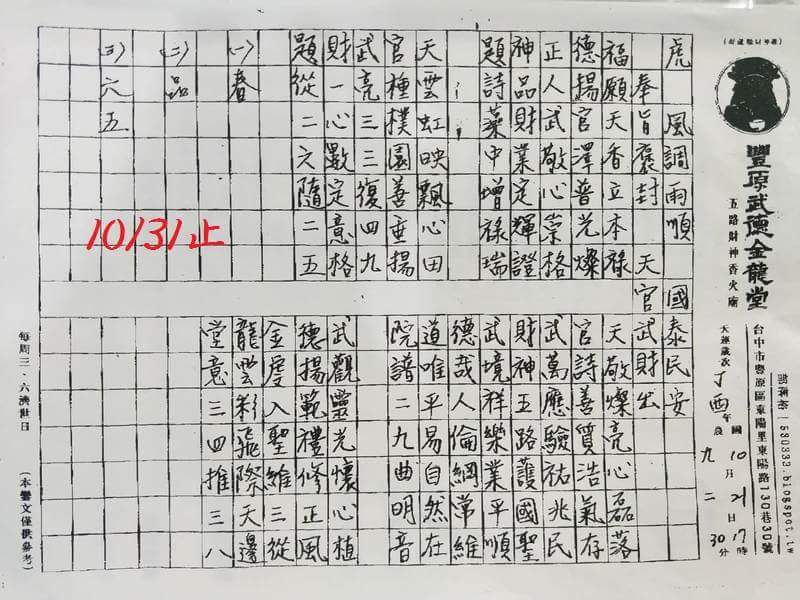 (謝達財驗准)
豐原武德金龍堂
五路財神香火廟
台中市豐原區東陽里東陽路130巷30號
部落格 1580333.blogspot.tw
天運歲次丁酉年 國10月21日17時
農九 二 30分
虎 風調雨順 國泰民安
奉旨褒封 天官武財出
福願天香立本祿 天敬燦亮心磊落
德揚官澤普光燦 官詩善質浩氣存
正人武敬心崇格 武萬應驗祐兆民
神品財業定輝證 財神五路護國聖
題詩藥中增祿瑞 武境祥樂業平順
; ; 德哉人倫綱常維
天雲虹映飄心田 道唯平易自然在
官種樸園善垂揚 院譜二九曲明音
武亮三三復四九
財一心數定意格 武觀靈光懷心植
題從二六隨二五 德揚範禮修正風
金虔入聖維三從
(一)春 龍雲彩飛際天邊
堂意三四推三八
(二)品
(三)六五
10/31止
每周三、六濟世日
(本鸞文僅供參考)